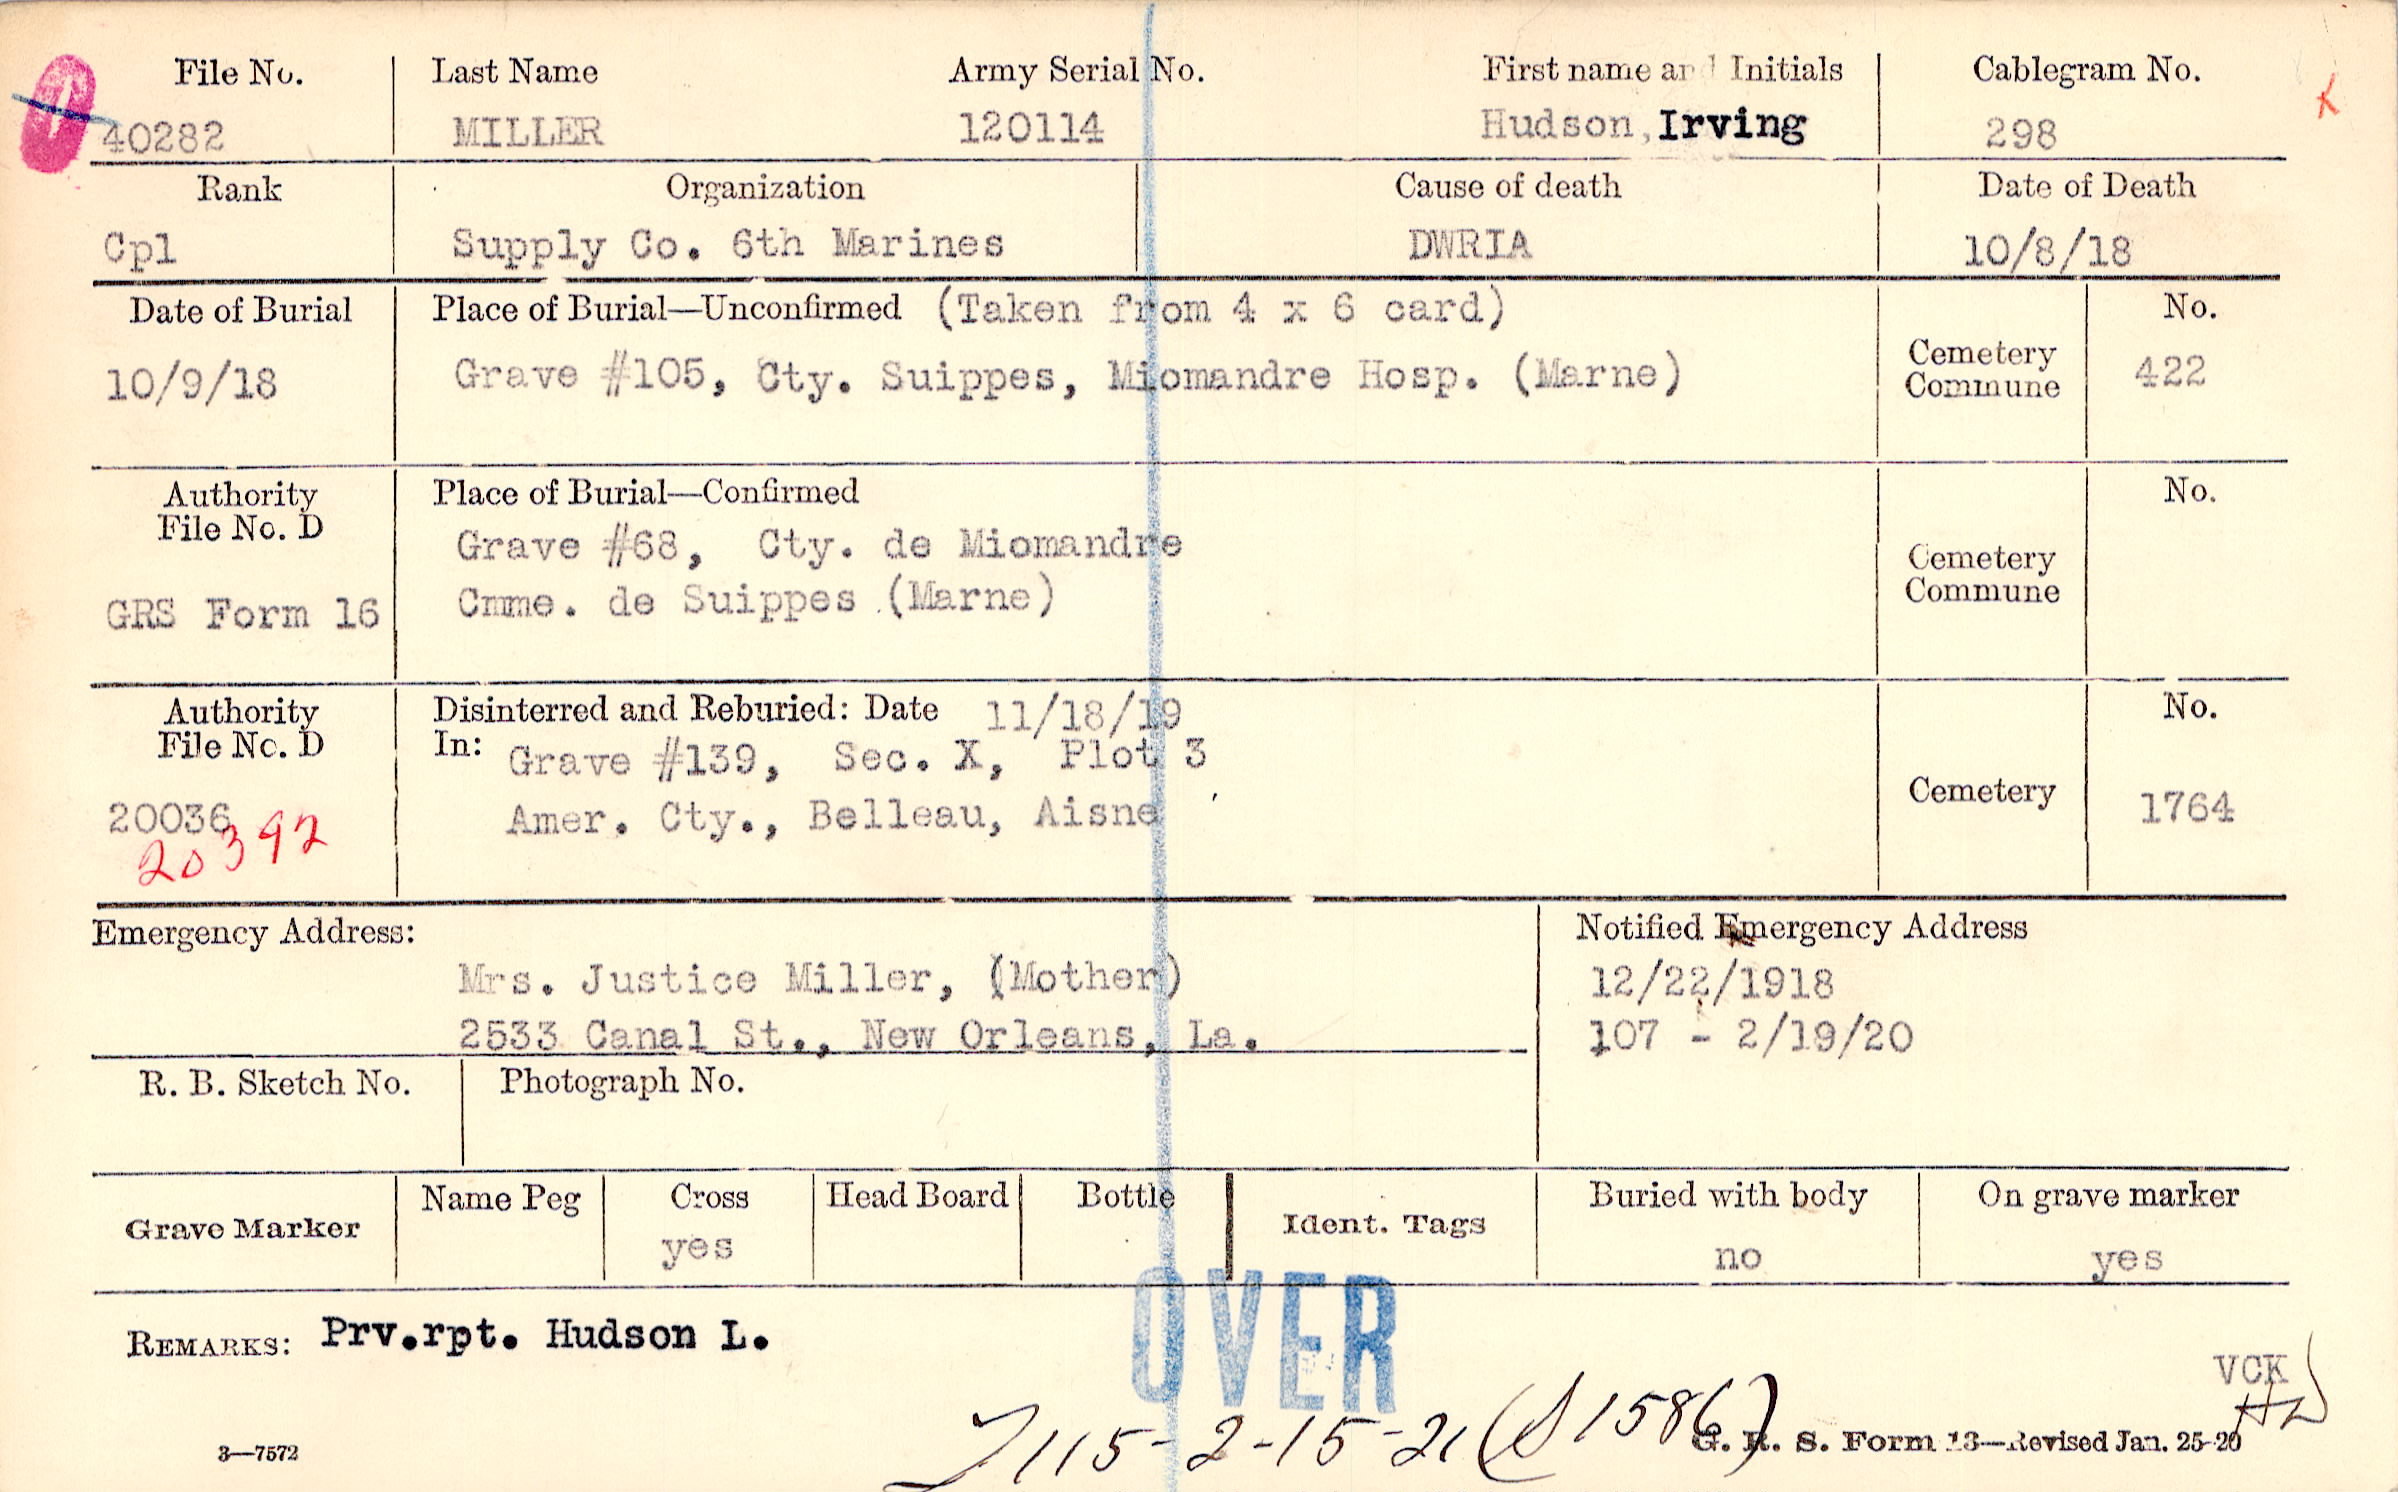 File No. Last Name Army Serial No. First name and Initials Cablegram No.
40282 MILLER 120114 Hudson, Irving 298
Rank Organization Cause of death Date of Death
Cpl Supply Co. 6th Marines DWRIA 10/8/18
Date of Burial Place of Burial—Unconfirmed (Taken from 4 x 6 card) No.
10/9/18 Grave #105, Cty. Suippes, Miomandre Hosp. (Marne) Cemetery Commune 422
Authority File No. D Place of Burial—Confirmed No.
Grave #68, Cty. de Miomandre Cemetery Commune
GRS Form 16 Cmme. de Suippes (Marne)
Authority File No. D Disinterred and Reburied: Date 11/18/19 No.
In: Grave #139, Sec. X, Plot 3
20036 Amer. Cty., Belleau, Aisne Cemetery 1764
20392
Emergency Address: Notified Emergency Address
Mrs. Justice Miller, (Mother) 12/22/1918
2533 Canal St., New Orleans, La. 107 - 2/19/20
R. B. Sketch No. Photograph No.
Grave Marker Name Peg Cross Head Board Bottle Ident. Tags Buried with body On grave marker
yes no yes
OVER
REMARKS: Prv.rpt. Hudson L.
VCK
115-2-15-21 1586)
3—7572 G. R. S. Form 13—Revised Jan. 25-20